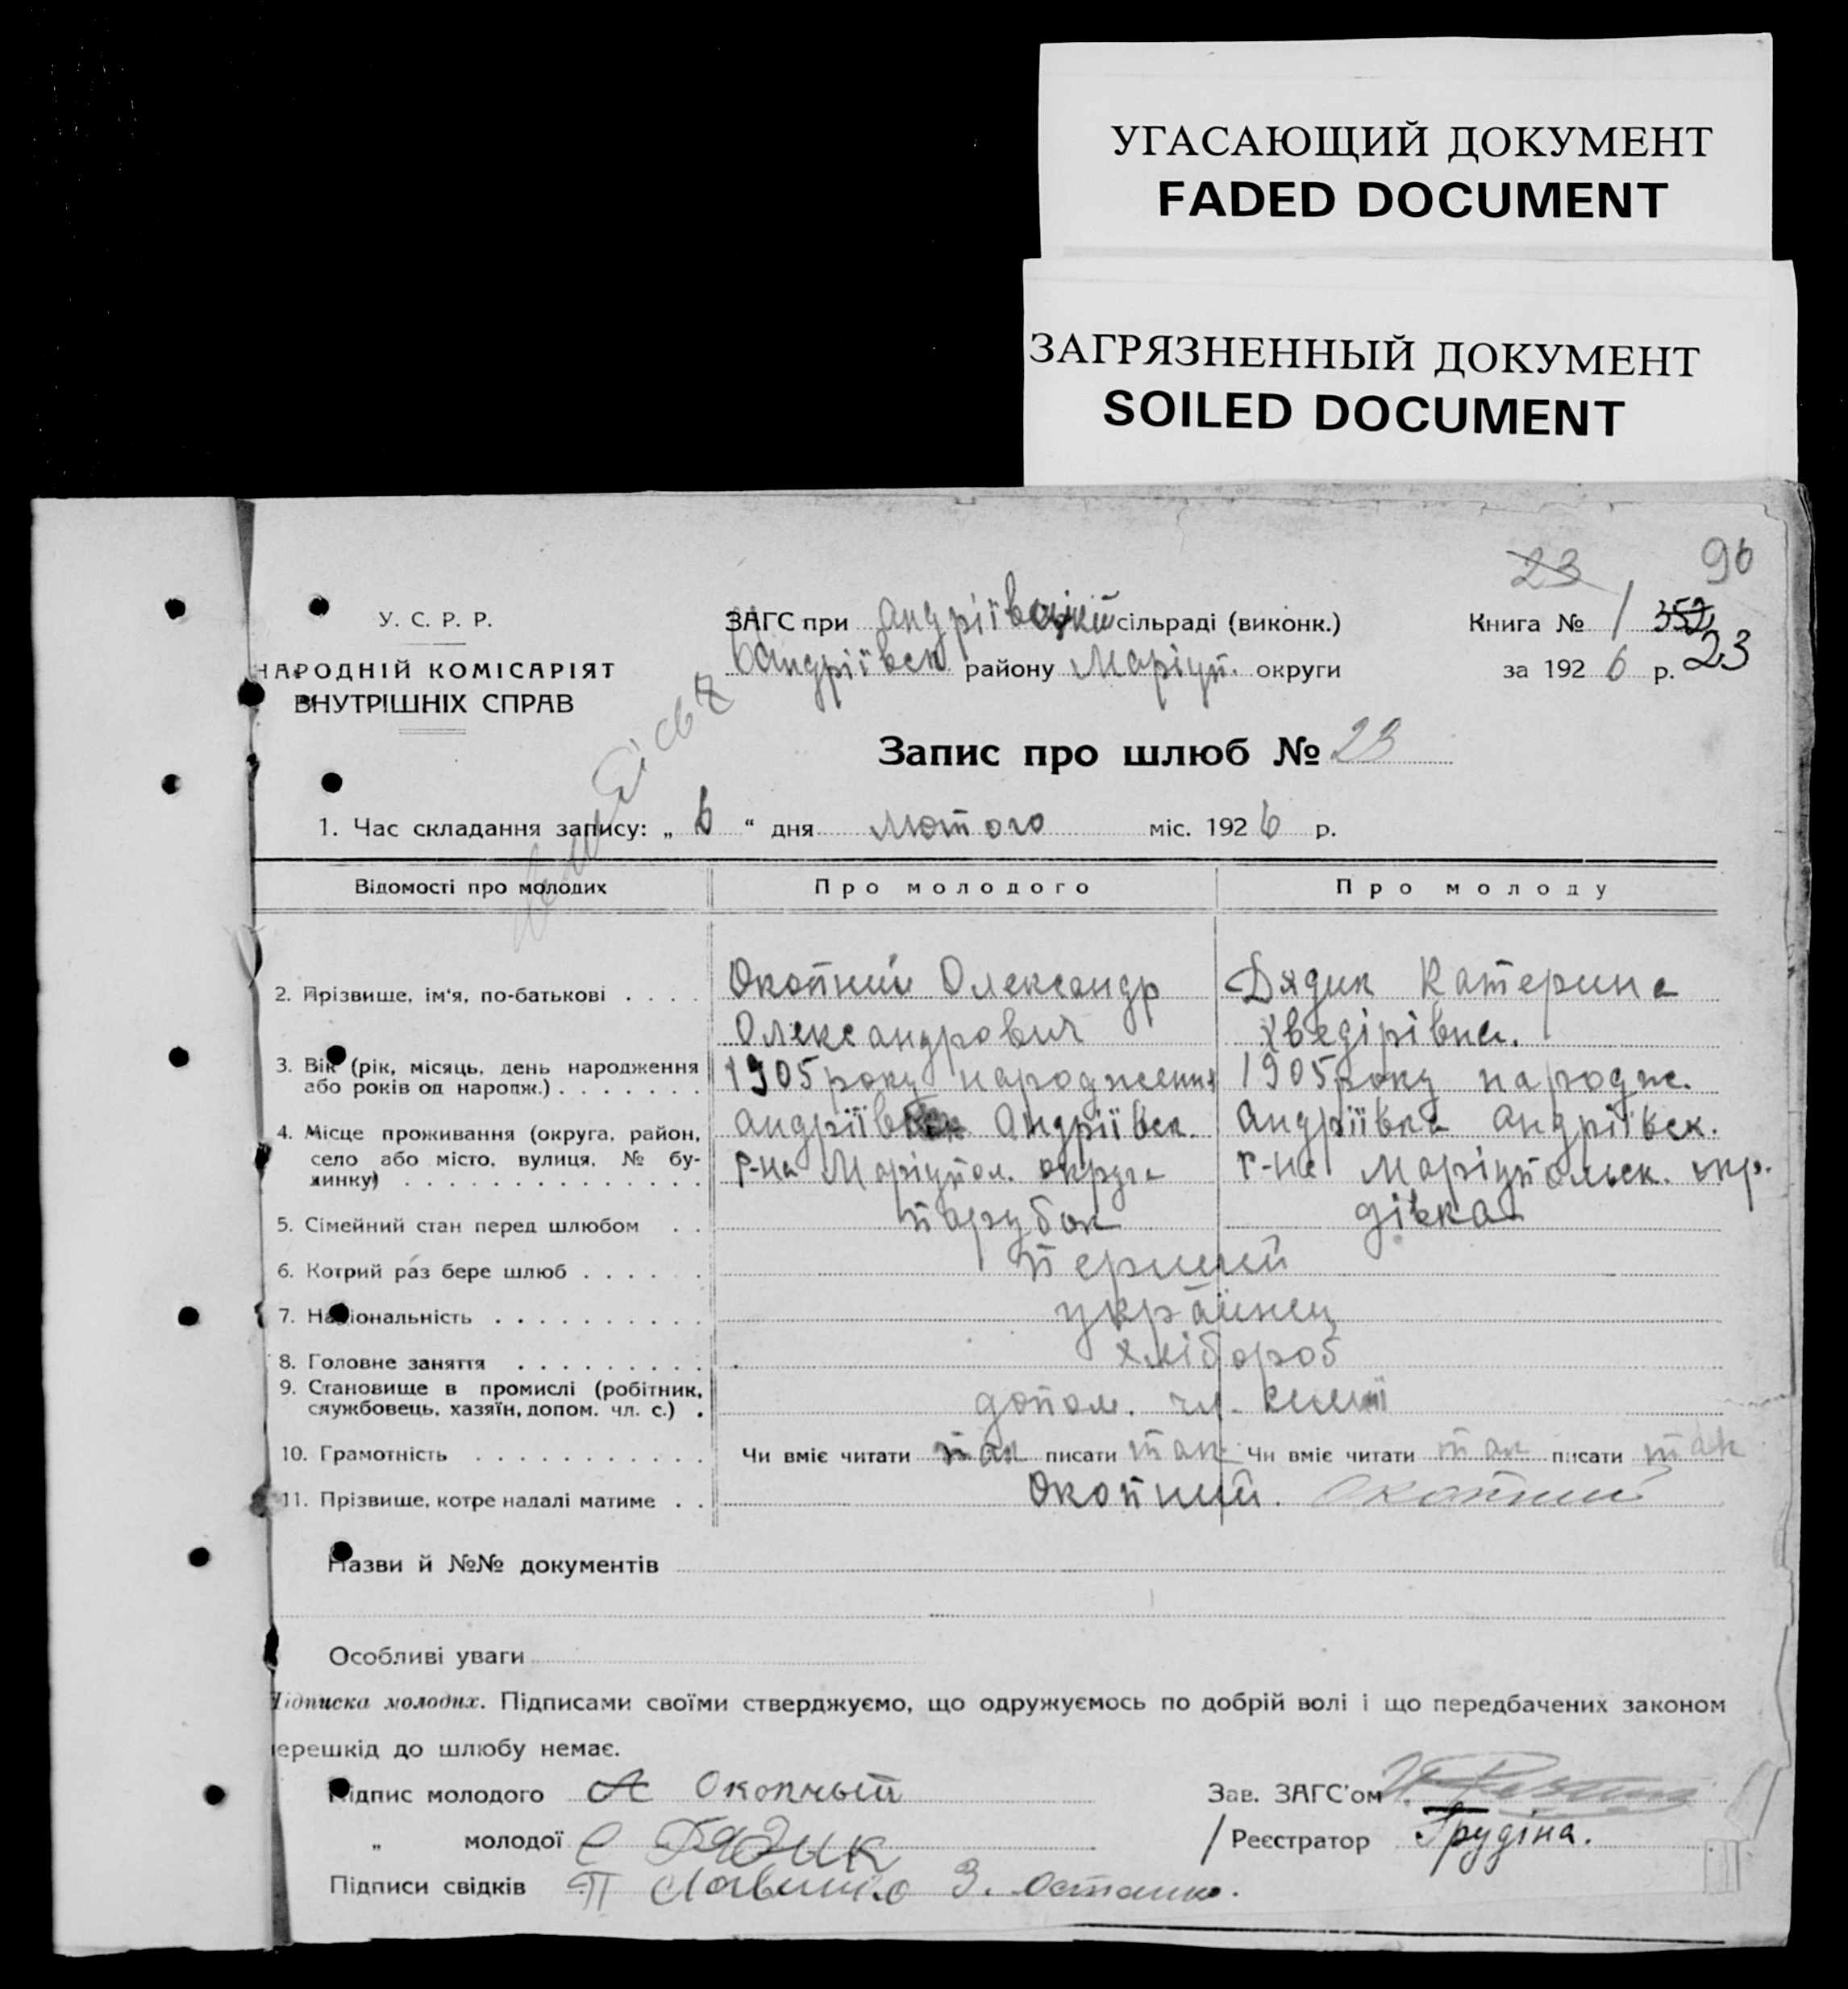 УГАСАЮЩИЙ ДОКУМЕНТ
FADED DOCUMENT
ЗАГРЯЗНЕННЫЙ ДОКУМЕНТ
SOILED DOCUMENT
23 96
У. С. Р. Р.
НАРОДНІЙ КОМІСАРІЯТ
ВНУТРІШНІХ СПРАВ
ЗАГС при Андріївській сільраді (виконк.)
Андріївськ району Маріуп. округи
Книга № 1 352
за 1926 р. 23
Запис про шлюб № 23
1. Час складання запису: „ 6 “ дня лютого міс. 1926 р.
Відомості про молодих Про молодого Про молоду
2. Прізвище, ім'я, по-батькові . . . . Окопний Олександр Олександрович Дядик Катерина Хведірівна.
3. Вік (рік, місяць, день народження або років од народж.) . . . . . . . 1905 року народження 1905 року народж.
4. Місце проживання (округа, район, село або місто, вулиця, № будинку) . . . . . . . . . . . . . . Андріївка Андріївск. р-на Маріупол. округа Андріївка Андріївск. р-на Маріупольск. окр.
5. Сімейний стан перед шлюбом . . парубок дівка
6. Котрий раз бере шлюб . . . . . . перший
7. Національність . . . . . . . . . . українец
8. Головне заняття . . . . . . . . . хлібороб
9. Становище в промислі (робітник, службовець, хазяїн, допом. чл. с.) . допом. чл. семї
10. Грамотність . . . . . . . . . . . Чи вміє читати так писати так Чи вміє читати так писати так
11. Прізвище, котре надалі матиме . . Окопний. Окопний
Назви й №№ документів
Особливі уваги
Підписка молодих. Підписами своїми стверджуємо, що одружуємось по добрій волі і що передбачених законом
перешкід до шлюбу немає.
Підпис молодого А Окопный Зав. ЗАГС'ом
„ молодої Дядик / Реєстратор Грудіна.
Підписи свідків П З. Остапко.